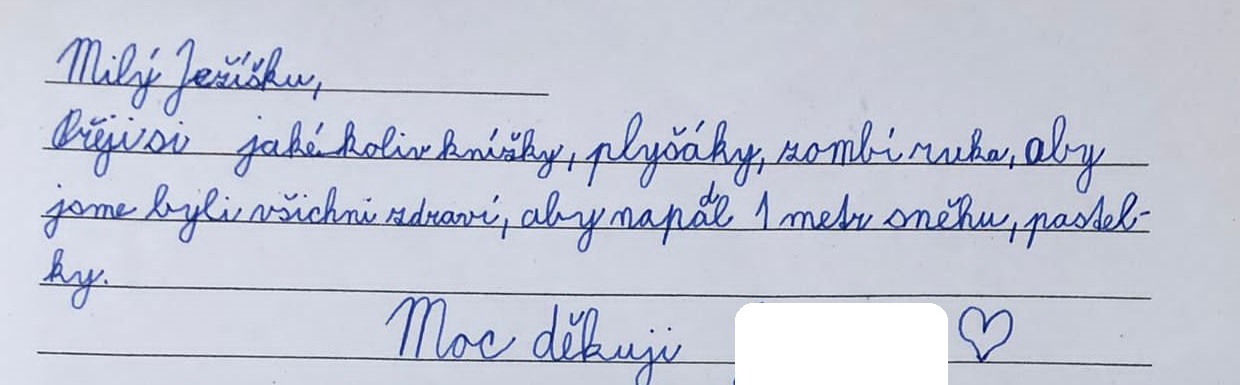 Milý Ježíšku,
Přeji si jakékoliv knížky, plyšáky, zombí ruka, aby
jsme byli všichni zdraví, aby napádl 1 metr sněhu, pastel-
ky.
Moc děkuji ♡